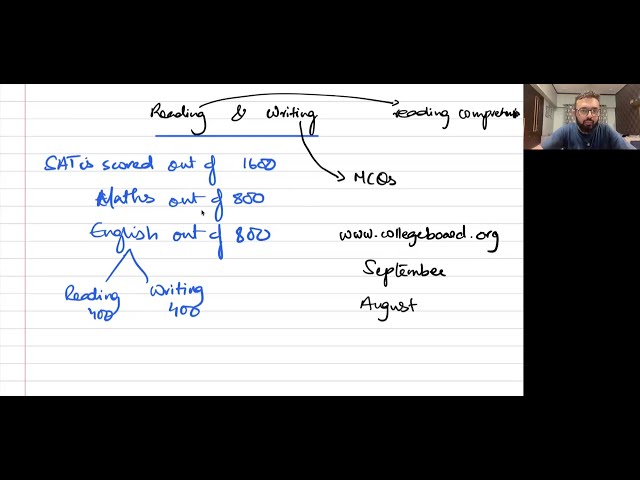 Reading & Writing
reading
SAT is scored out of 1600
MCQs
Maths out of 800
English out of 800
www.collegeboard.org
September
Reading Writing
400 400
August